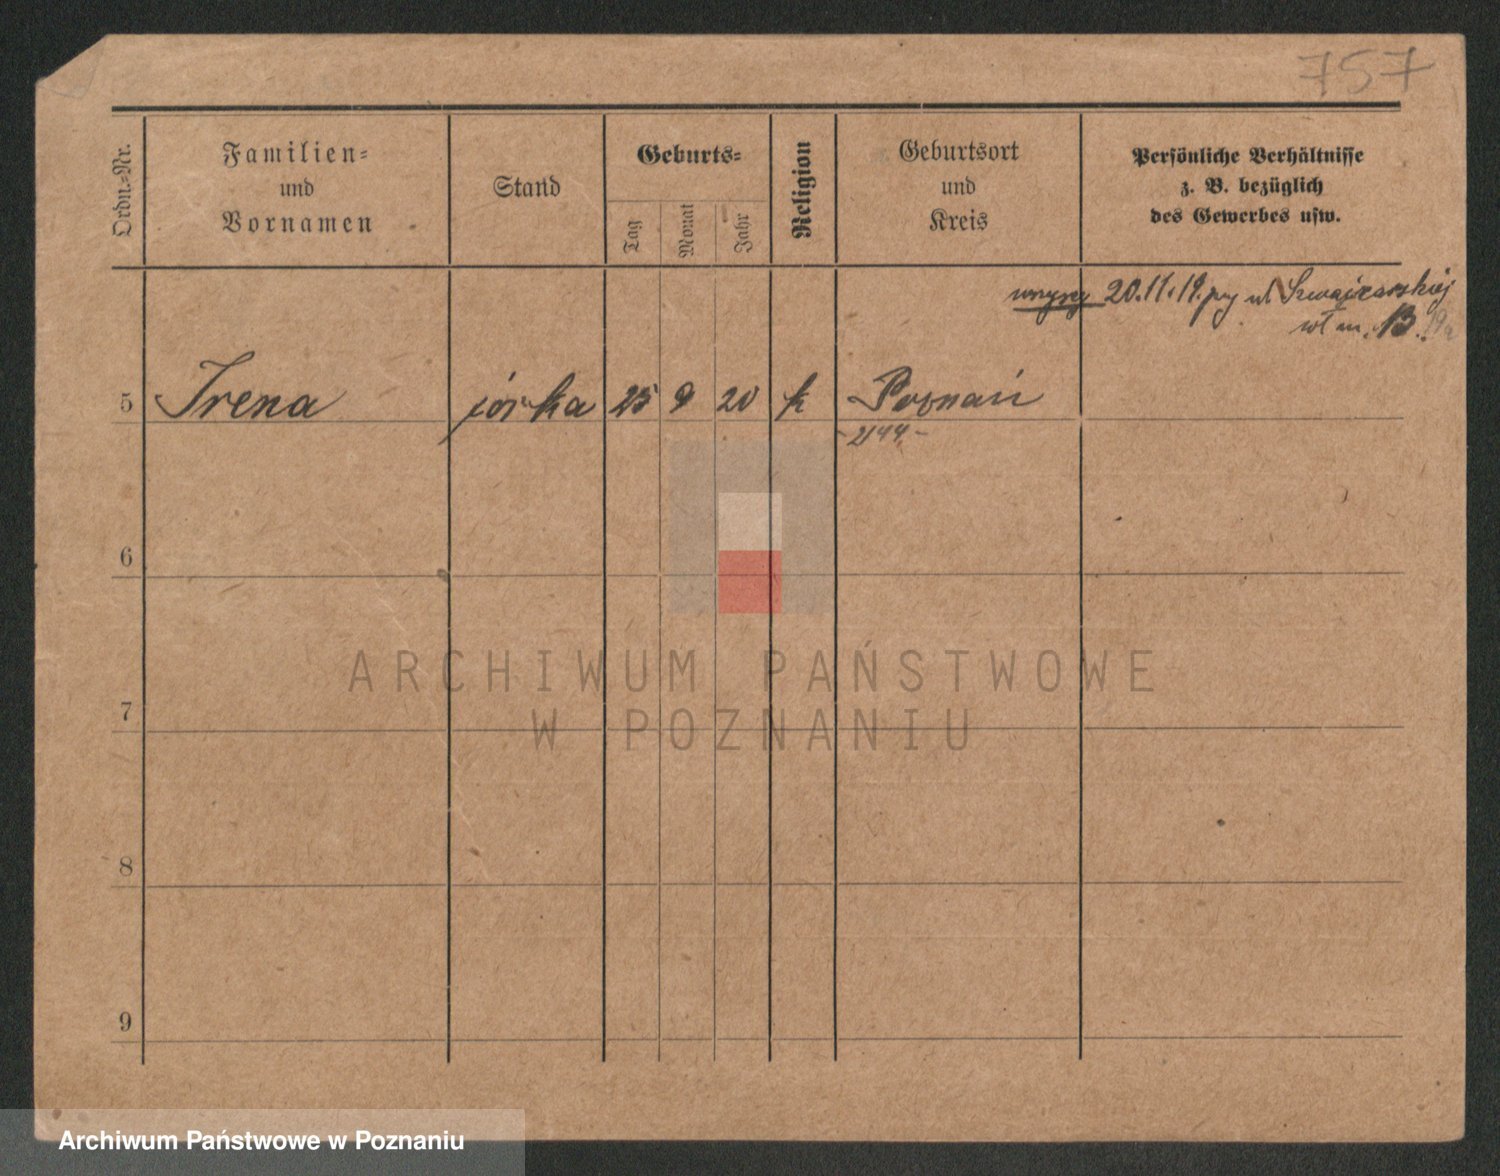 757
Ordn.-Nr.
Familien-
und
Vornamen
Stand
Geburts-
Tag
Monat
Jahr
Religion
Geburtsort
und
Kreis
Persönliche Verhältnisse
z. B. bezüglich
des Gewerbes usw.
wszyscy 20.11.19. przy ul. Szwajcarskiej
wł m. 13.
5 Irena córka 25 9 20 k Poznań
2144 -
6
ARCHIWUM PAŃSTWOWE
7
W POZNANIU
8
9
Archiwum Państwowe w Poznaniu